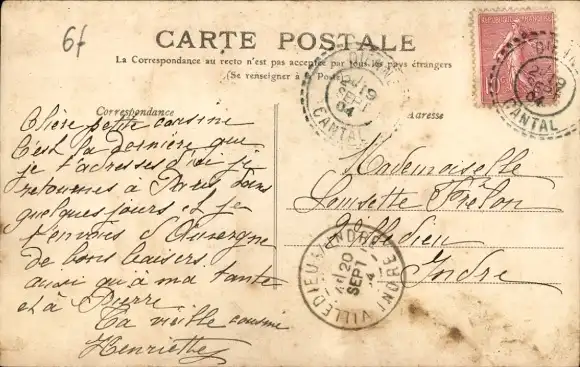 6f
CARTE POSTALE
La Correspondance au recto n'est pas acceptée par tous les pays étrangers
(Se renseigner à la Poste)
Correspondance
Adresse
REPUBLIQUE FRANÇAISE
19
SEPT
04
CANTAL
CANTAL
Chère petite cousine
C'est la dernière que
je t'adresse d'ici je
retournes à Paris dans
quelques jours et je
t'envoies d'Auvergne
de bons baisers
ainsi qu'à ma tante
et à Pierre
Ta vieille cousine
Henriette
Mademoiselle
Louisette Frélon
Villedieu
Indre
VILLEDIEU INDRE
20
SEPT
4